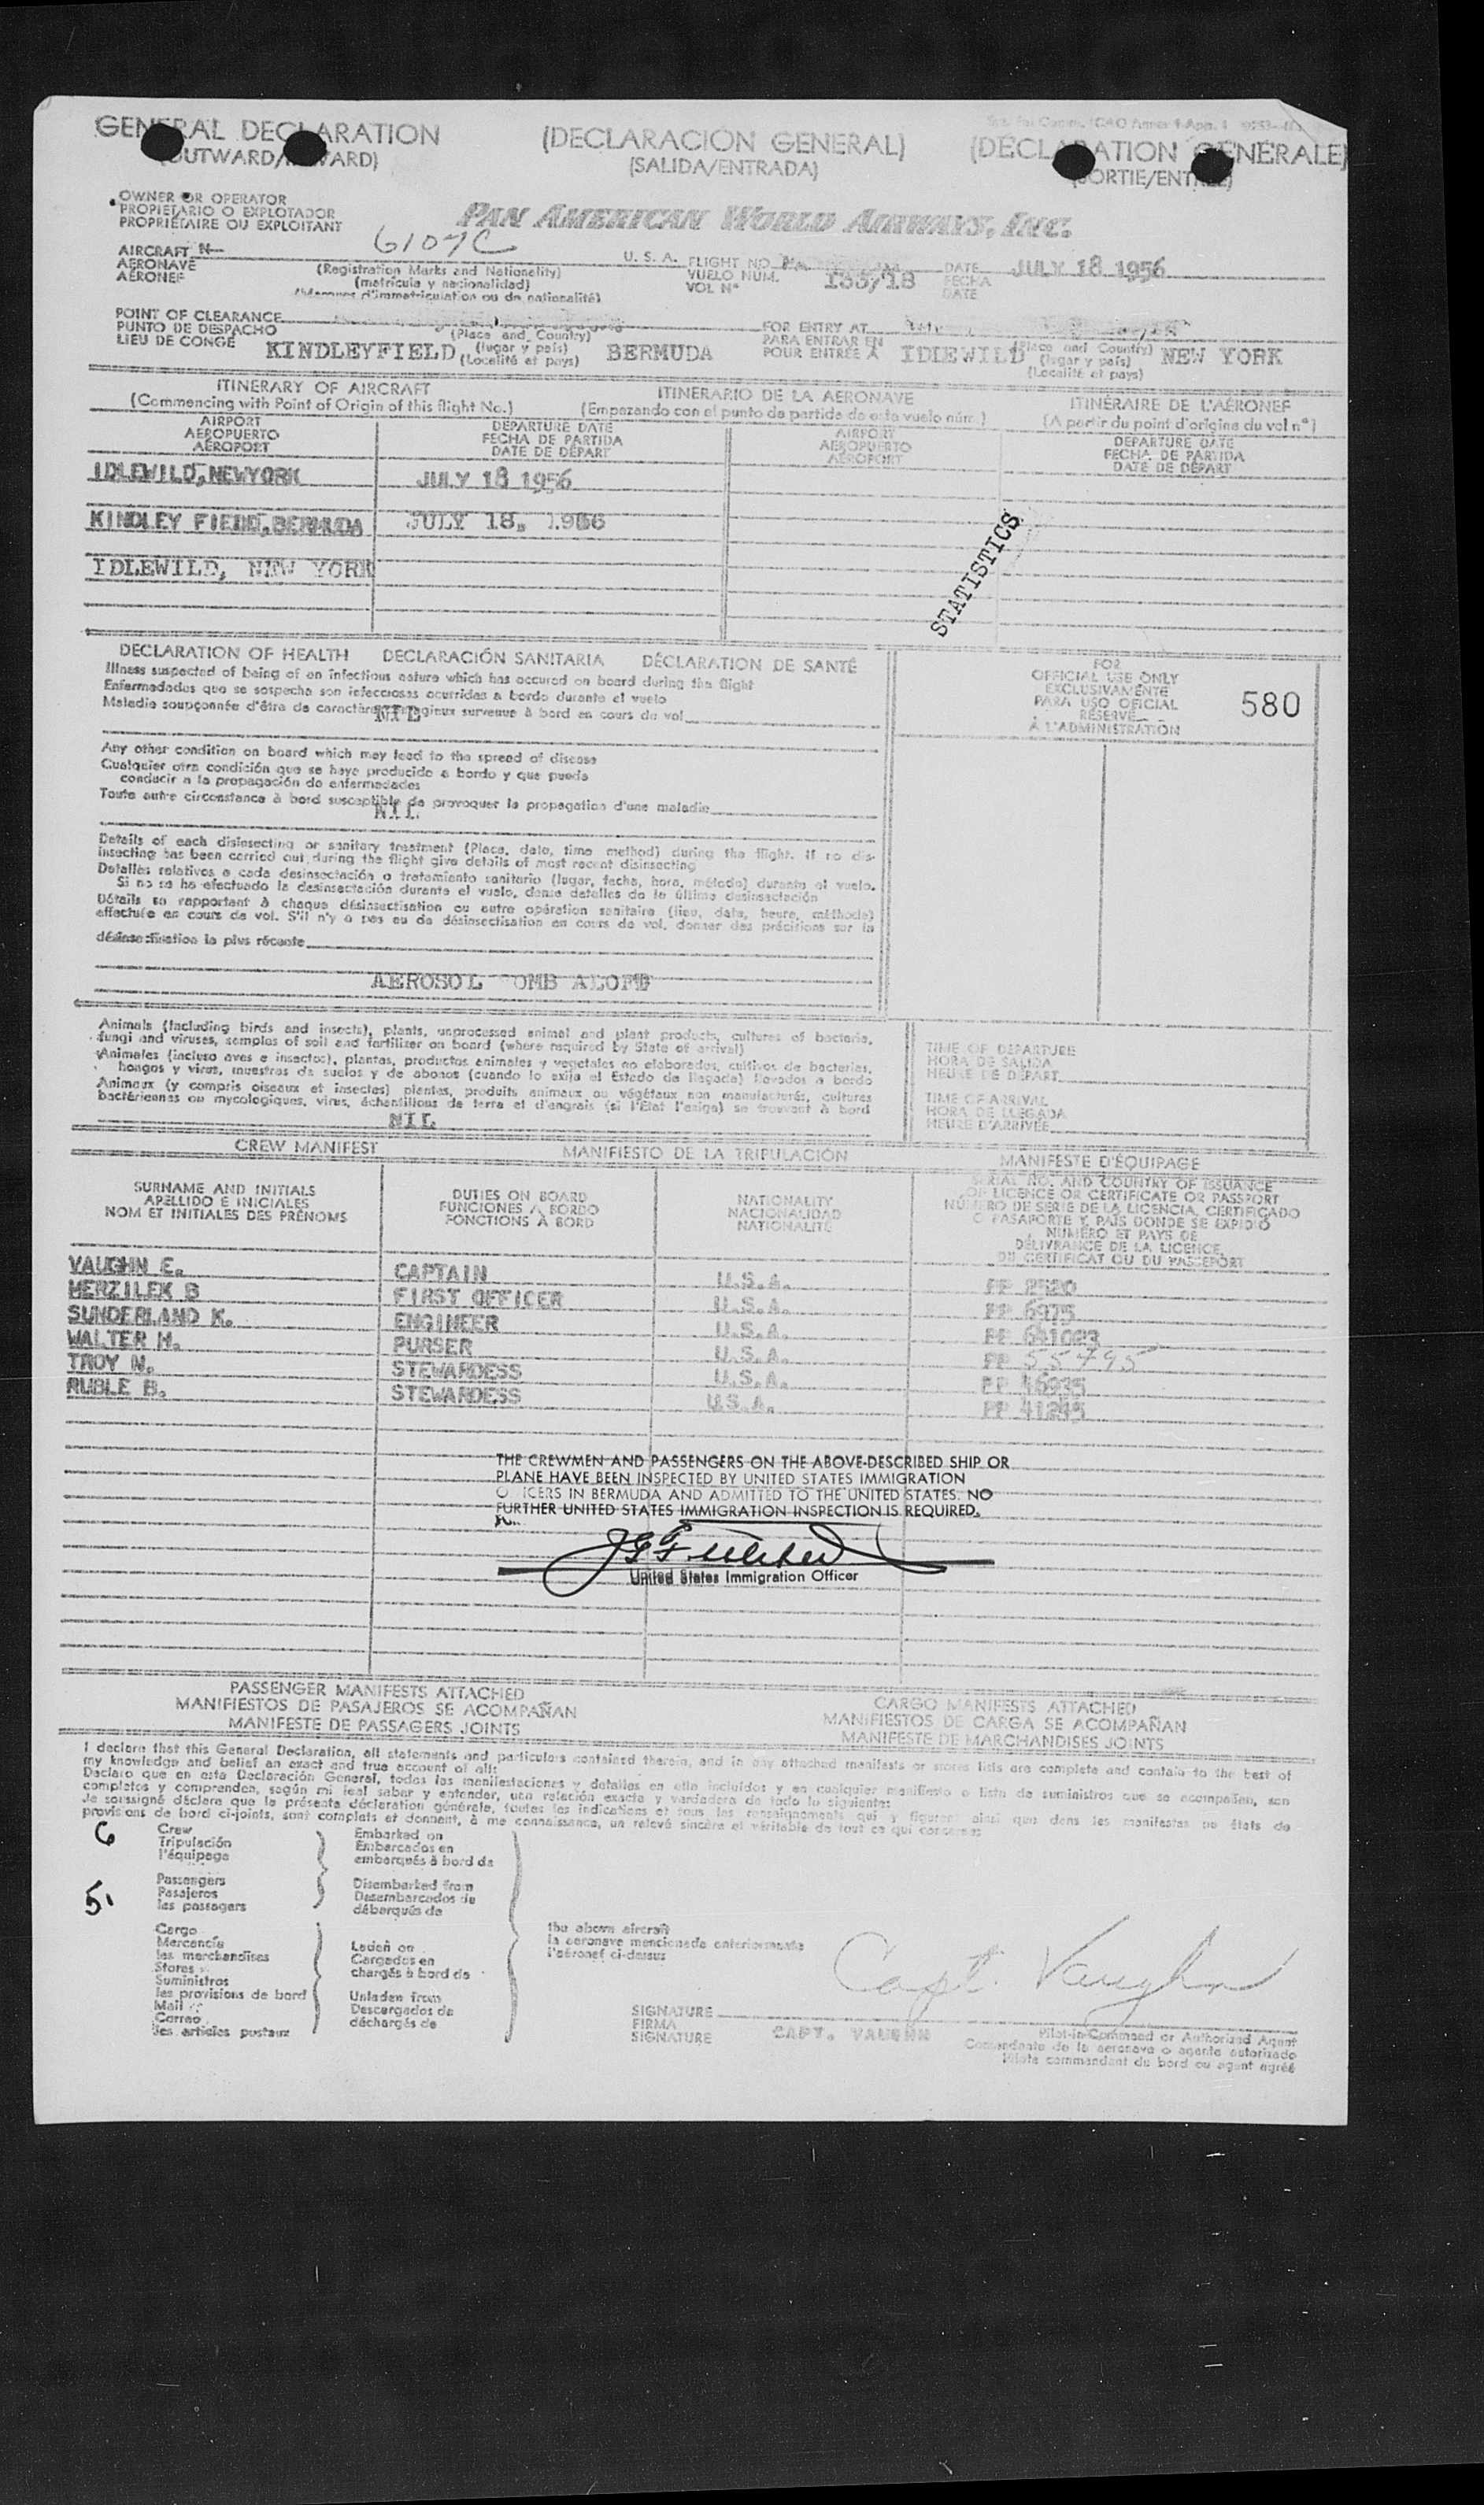 GENERAL DECLARATION (DECLARACIÓN GENERAL) (DÉCLARATION GÉNÉRALE)
(OUTWARD/INWARD) (SALIDA/ENTRADA) (SORTIE/ENTRÉE)
OWNER OR OPERATOR
PROPIETARIO O EXPLOTADOR
PROPRIÉTAIRE OU EXPLOITANT
PAN AMERICAN WORLD AIRWAYS, INC.
AIRCRAFT N 6107C U. S. A. FLIGHT NO. DATE JULY 18 1956
AERONAVE (Registration Marks and Nationality) VUELO NUM. 133/18 FECHA
AÉRONEF (matrícula y nacionalidad) VOL N° DATE
(Marques d'immatriculation ou de nationalité)
POINT OF CLEARANCE FOR ENTRY AT
PUNTO DE DESPACHO (Place and Country) PARA ENTRAR EN (Place and Country)
LIEU DE CONGÉ KINDLEYFIELD (lugar y país) BERMUDA POUR ENTRÉE À IDLEWILD (lugar y país) NEW YORK
(Localité et pays) (Localité et pays)
ITINERARY OF AIRCRAFT ITINERARIO DE LA AERONAVE ITINÉRAIRE DE L'AÉRONEF
(Commencing with Point of Origin of this flight No.) (Empezando con el punto de partida de este vuelo núm.) (A partir du point d'origine du vol n°)
AIRPORT DEPARTURE DATE AIRPORT DEPARTURE DATE
AEROPUERTO FECHA DE PARTIDA AEROPUERTO FECHA DE PARTIDA
AÉROPORT DATE DE DÉPART AÉROPORT DATE DE DÉPART
IDLEWILD, NEWYORK JULY 18 1956
KINDLEY FIELD, BERMUDA JULY 18, 1956
IDLEWILD, NEW YORK
STATISTICS
DECLARATION OF HEALTH DECLARACIÓN SANITARIA DÉCLARATION DE SANTÉ
Illness suspected of being of an infectious nature which has occured on board during the flight
Enfermedades que se sospecha son infecciosas ocurridas a bordo durante el vuelo
Maladie soupçonnée d'être de caractère survenue à bord en cours de vol
NIL
FOR
OFFICIAL USE ONLY
EXCLUSIVAMENTE
PARA USO OFICIAL
RÉSERVÉ
À L'ADMINISTRATION
580
Any other condition on board which may lead to the spread of disease
Cualquier otra condición que se haya producido a bordo y que pueda
conducir a la propagación de enfermedades
Toute autre circonstance à bord susceptible de provoquer la propagation d'une maladie
NIL
Details of each disinsecting or sanitary treatment (Place, date, time method) during the flight. If no dis-
insecting has been carried out during the flight give details of most recent disinsecting
Detalles relativos a cada desinsectación o tratamiento sanitario (lugar, fecha, hora, método) durante el vuelo.
Si no se ha efectuado la desinsectación durante el vuelo, dense detalles de la última desinsectación
Détails se rapportant à chaque désinsectisation ou autre opération sanitaire (lieu, date, heure, méthode)
effectuée en cours de vol. S'il n'y a pas eu de désinsectisation en cours de vol, donner des précisions sur la
désinsectisation la plus récente
AEROSOL OMB ALOFT
Animals (including birds and insects), plants, unprocessed animal and plant products, cultures of bacteria,
fungi and viruses, samples of soil and fertilizer on board (where required by State of arrival)
Animales (incluso aves e insectos), plantas, productos animales y vegetales no elaborados, cultivos de bacterias,
hongos y virus, muestras de suelos y de abonos (cuando lo exija el Estado de llegada) llevados a bordo
Animaux (y compris oiseaux et insectes) plantes, produits animaux ou végétaux non manufacturés, cultures
bactériennes ou mycologiques, virus, échantillons de terre et d'engrais (si l'État l'exige) se trouvant à bord
NIL
TIME OF DEPARTURE
HORA DE SALIDA
HEURE DE DÉPART
TIME OF ARRIVAL
HORA DE LLEGADA
HEURE D'ARRIVÉE
CREW MANIFEST MANIFIESTO DE LA TRIPULACIÓN MANIFESTE D'ÉQUIPAGE
SURNAME AND INITIALS
APELLIDO E INICIALES
NOM ET INITIALES DES PRÉNOMS
DUTIES ON BOARD
FUNCIONES A BORDO
FONCTIONS À BORD
NATIONALITY
NACIONALIDAD
NATIONALITÉ
SERIAL NO. AND COUNTRY OF ISSUANCE
OF LICENCE OR CERTIFICATE OR PASSPORT
NÚMERO DE SERIE DE LA LICENCIA, CERTIFICADO
O PASAPORTE Y PAÍS DONDE SE EXPIDIÓ
NUMÉRO ET PAYS DE
DÉLIVRANCE DE LA LICENCE,
DU CERTIFICAT OU DU PASSEPORT
VAUGHN E. CAPTAIN U.S.A. PP 2520
HERZILEK B FIRST OFFICER U.S.A. PP 6975
SUNDERLAND K. ENGINEER U.S.A. PP 641083
WALTER H. PURSER U.S.A. PP 55795
TROY N. STEWARDESS U.S.A. PP 46935
RUBLE B. STEWARDESS U.S.A. PP 41245
THE CREWMEN AND PASSENGERS ON THE ABOVE-DESCRIBED SHIP OR
PLANE HAVE BEEN INSPECTED BY UNITED STATES IMMIGRATION
O ICERS IN BERMUDA AND ADMITTED TO THE UNITED STATES. NO
FURTHER UNITED STATES IMMIGRATION INSPECTION IS REQUIRED.
United States Immigration Officer
PASSENGER MANIFESTS ATTACHED CARGO MANIFESTS ATTACHED
MANIFIESTOS DE PASAJEROS SE ACOMPAÑAN MANIFIESTOS DE CARGA SE ACOMPAÑAN
MANIFESTE DE PASSAGERS JOINTS MANIFESTE DE MARCHANDISES JOINTS
I declare that this General Declaration, all statements and particulars contained therein, and in any attached manifests or stores lists are complete and contain to the best of
my knowledge and belief an exact and true account of all:
Declaro que en esta Declaración General, todas las manifestaciones y detalles en ella incluidos y en cualquier manifiesto o lista de suministros que se acompañen, son
completos y comprenden, según mi leal saber y entender, una relación exacta y verdadera de todo lo siguiente:
Je soussigné déclare que la présente déclaration générale, toutes les indications et tous les renseignements qui y figurent ainsi que dans les manifestes ou états de
provisions de bord ci-joints, sont complets et donnent, à ma connaissance, un relevé sincère et véritable de tout ce qui concerne:
6 Crew
Tripulación
l'équipage
Embarked on
Embarcados en
embarqués à bord de
5 Passengers
Pasajeros
les passagers
Disembarked from
Desembarcados de
débarqués de
Cargo
Mercancía
les marchandises
Stores
Suministros
les provisions de bord
Mail
Correo
les articles postaux
Laden on
Cargados en
chargés à bord de
Unladen from
Descargados de
déchargés de
the above aircraft
la aeronave mencionada anteriormente
l'aéronef ci-dessus
Capt. Vaughn
SIGNATURE
FIRMA
SIGNATURE CAPT. VAUGHN
Pilot-in-Command or Authorized Agent
Comandante de la aeronave o agente autorizado
Pilote commandant du bord ou agent agréé